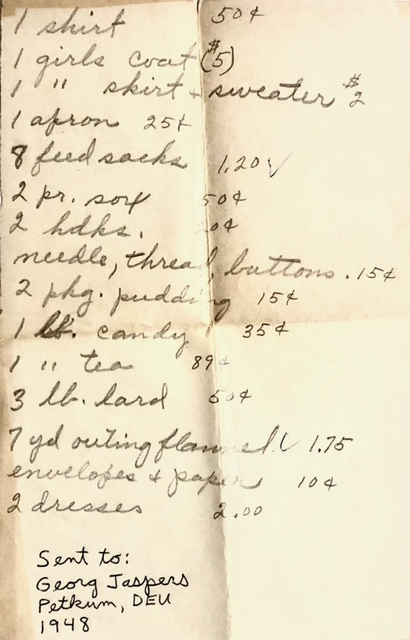 1 shirt 50¢
1 girls coat ($5)
1 " skirt + sweater $2
1 apron 25¢
8 feed sacks 1.20 ✓
2 pr. sox 50¢
2 hdks. 20¢
needle, thread, buttons. 15¢
2 phg. pudding 15¢
1 lb. candy 35¢
1 " tea 89¢
3 lb. lard 50¢
7 yd outing flannel. ✓ 1.75
envelopes + paper 10¢
2 dresses 2.00
Sent to:
Georg Jaspers
Petkum, DEU
1948